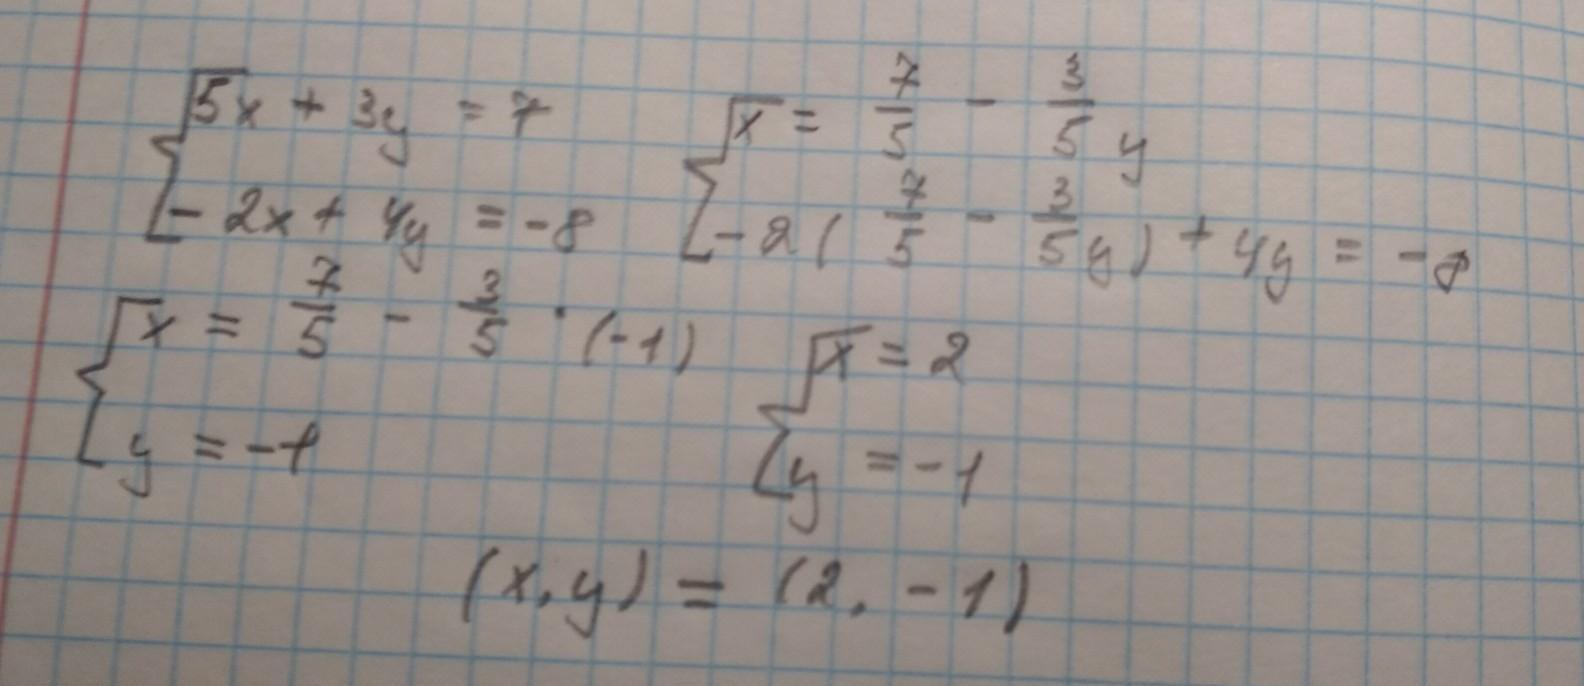 {5x + 3y = 7
-2x + 4y = -8
{x = 7/5 - 3/5 y
-2(7/5 - 3/5 y) + 4y = -8
{x = 7/5 - 3/5 · (-1)
y = -1
{x = 2
y = -1
(x, y) = (2, -1)